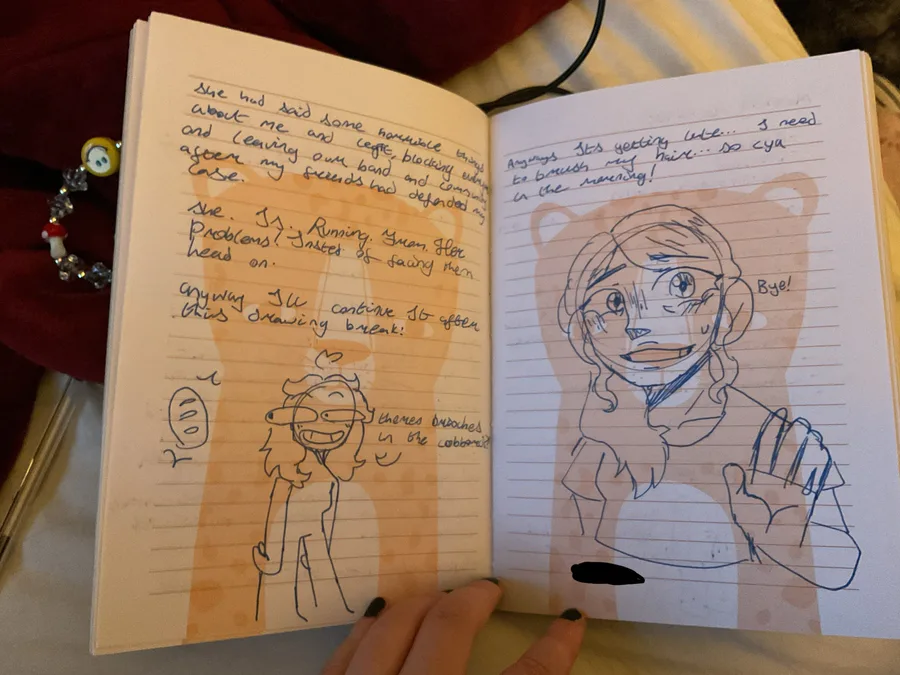 she had said some horrible things
about me and legit blocking
and leaving our band and
after my friends had defended my
case.
She. Is. Running. From. Her
Problems! Insted of facing them
head on.
anyway I'll continue It after
this drawing break!
theres broaches
in the
Anyways Its getting late... I need
to brush my hair... so cya
in the morning!
Bye!